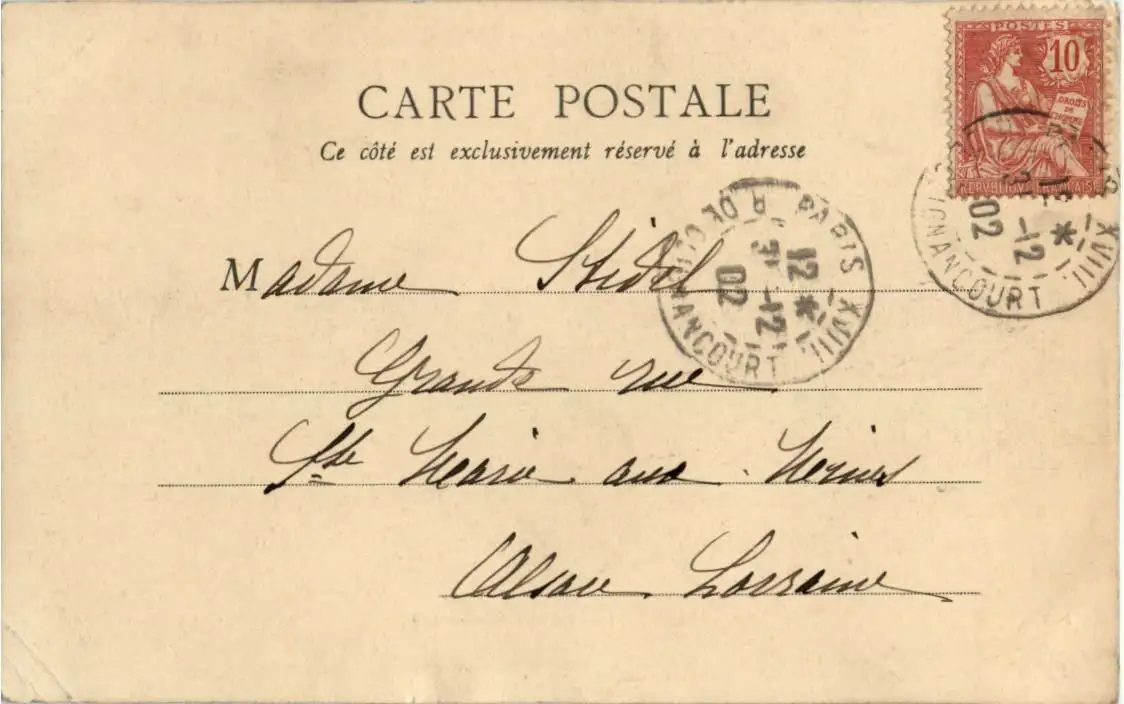 POSTES
10
DROITS
DE
L'HOMME
REPVBLIQVE FRANÇAISE
CARTE POSTALE
Ce côté est exclusivement réservé à l'adresse
PARIS XVIII
R. DE CLIGNANCOURT
12 *
31 -12
02
PARIS XVIII
CLIGNANCOURT
*
31 -12
02
Madame Stidel
Grande rue
Ste Marie aux Mines
Alsace Lorraine